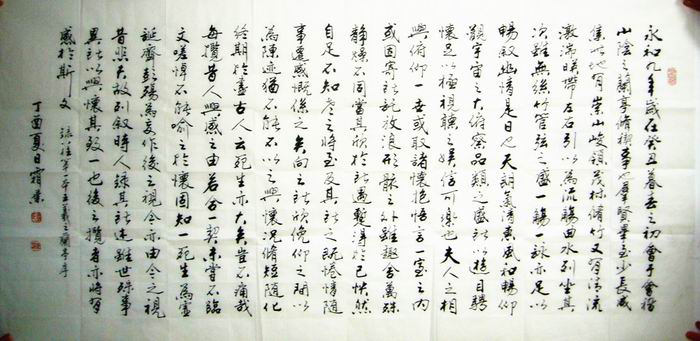 永和九年歲在癸丑暮春之初會于會稽
山陰之蘭亭脩禊事也羣賢畢至少長咸
集此地有崇山峻領茂林脩竹又有清流
激湍暎帶左右引以為流觴曲水列坐其
次雖無絲竹管弦之盛一觴一詠亦足以
暢敘幽情是日也天朗氣清惠風和暢仰
觀宇宙之大俯察品類之盛所以遊目騁
懷足以極視聽之娛信可樂也夫人之相
與俯仰一世或取諸懷抱悟言一室之內
或因寄所託放浪形骸之外雖趣舍萬殊
靜躁不同當其欣於所遇暫得於己快然
自足不知老之將至及其所之既惓情隨
事遷感慨係之矣向之所欣俛仰之間以
為陳迹猶不能不以之興懷況脩短隨化
終期於盡古人云死生亦大矣豈不痛哉
每攬昔人興感之由若合一契未嘗不臨
文嗟悼不能喻之於懷固知一死生為虛
誕齊彭殤為妄作後之視今亦由今之視
昔悲夫故列敘時人錄其所述雖世殊事
異所以興懷其致一也後之攬者亦將有
感於斯文 王羲之蘭亭序
丁酉夏日